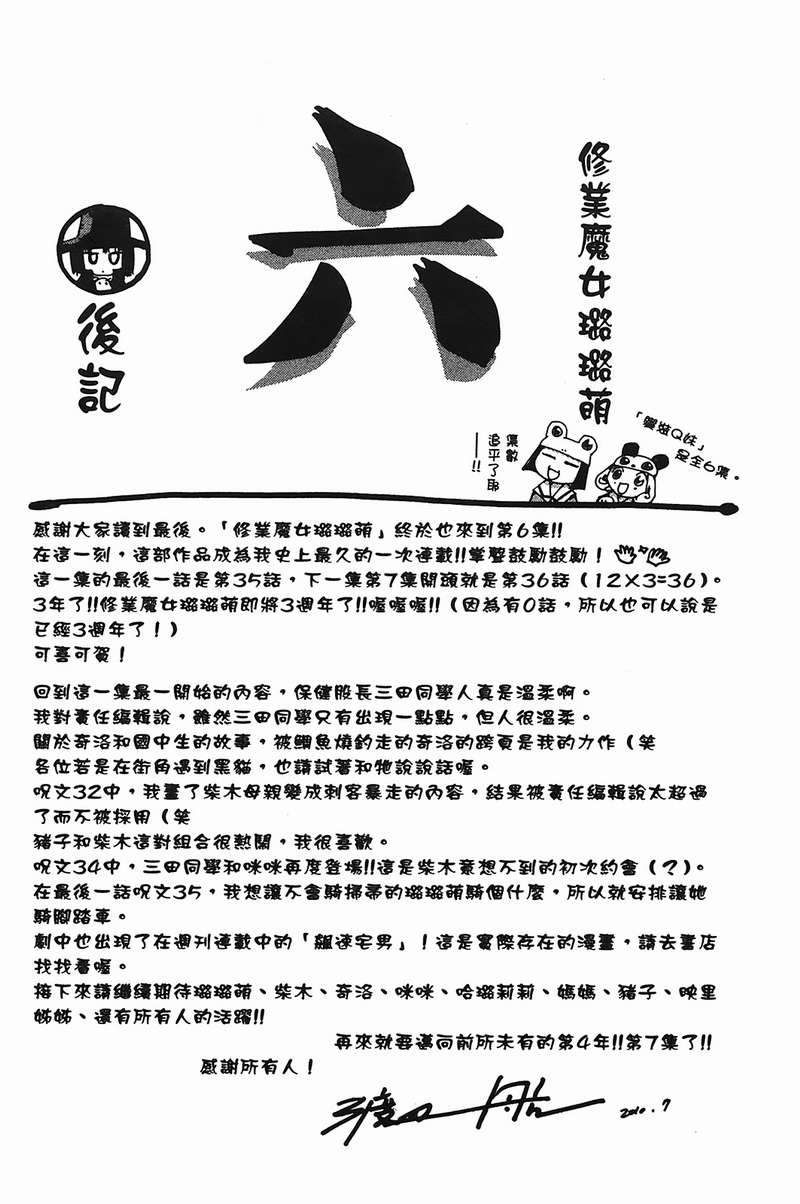 修業魔女璐璐萌
六
後記
「變裝Q妹」
是全6集。
集數
追平了耶
——!!
感謝大家讀到最後。「修業魔女璐璐萌」終於也來到第6集!!
在這一刻，這部作品成為我史上最久的一次連載!!掌聲鼓勵鼓勵！
這一集的最後一話是第35話，下一集第7集開頭就是第36話（12X3=36）。
3年了!!修業魔女璐璐萌即將3週年了!!喔喔喔!!（因為有0話，所以也可以說是
已經3週年了！）
可喜可賀！
回到這一集最一開始的內容，保健股長三田同學人真是溫柔啊。
我對責任編輯說，雖然三田同學只有出現一點點，但人很溫柔。
關於奇洛和國中生的故事，被鯛魚燒釣走的奇洛的跨頁是我的力作（笑
各位若是在街角遇到黑貓，也請試著和牠說說話喔。
呪文32中，我畫了柴木母親變成刺客暴走的內容，結果被責任編輯說太超過
了而不被採用（笑
豬子和柴木這對組合很熱鬧，我很喜歡。
呪文34中，三田同學和咪咪再度登場!!這是柴木意想不到的初次約會（?）。
在最後一話呪文35，我想讓不會騎掃帚的璐璐萌騎個什麼，所以就安排讓她
騎腳踏車。
劇中也出現了在週刊連載中的「飆速宅男」！這是實際存在的漫畫，請去書店
找找看喔。
接下來請繼續期待璐璐萌、柴木、奇洛、咪咪、哈璐莉莉、媽媽、豬子、映里
姊姊、還有所有人的活躍!!
再來就要邁向前所未有的第4年!!第7集了!!
感謝所有人！
2010.7